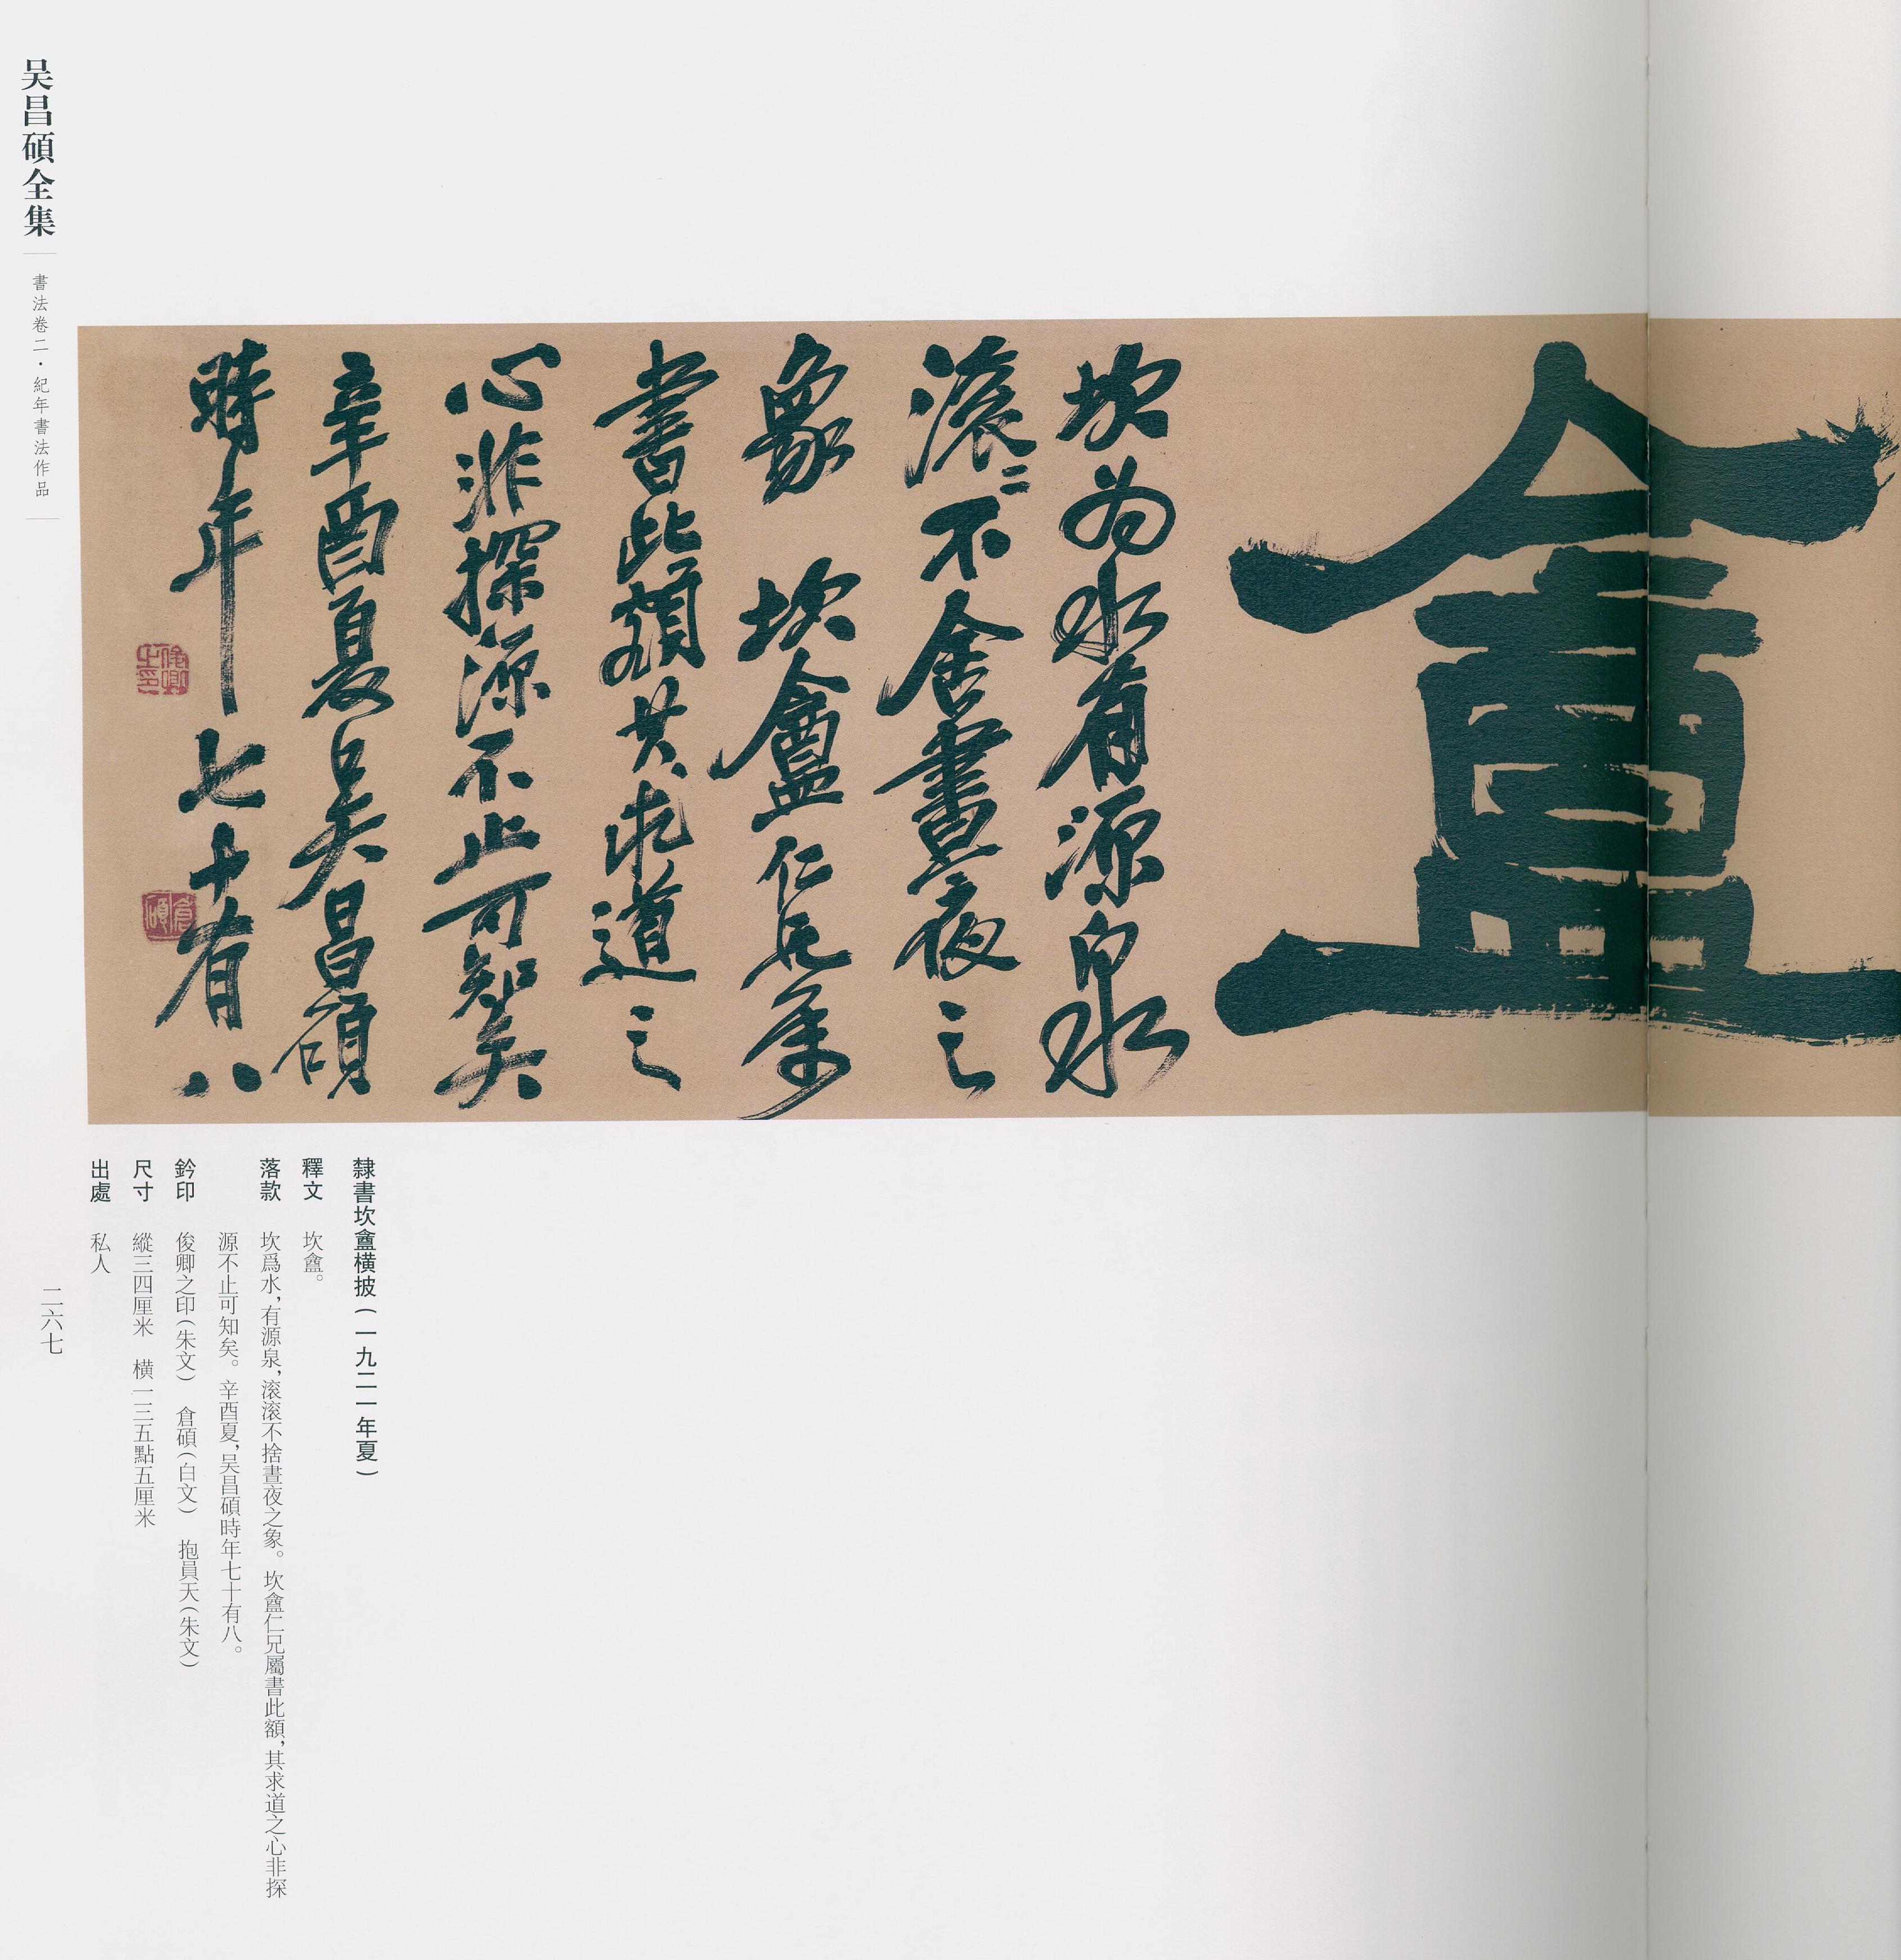 盦
坎為水有源泉
滾〻不舍晝夜之
象 坎盦仁兄屬
書此額其求道之
心非探源不止可知矣
辛酉夏吴昌碩
時年七十有八
俊卿之印
倉碩
隸書坎盦橫披(一九二一年夏)
釋文 坎盦。
落款 坎爲水,有源泉,滚滚不捨晝夜之象。坎盦仁兄屬書此額,其求道之心非探
源不止可知矣。辛酉夏,吴昌碩時年七十有八。
鈐印 俊卿之印(朱文) 倉碩(白文) 抱員天(朱文)
尺寸 縱三四厘米 橫一三五點五厘米
出處 私人
吴昌碩全集
書法卷二·紀年書法作品
二六七